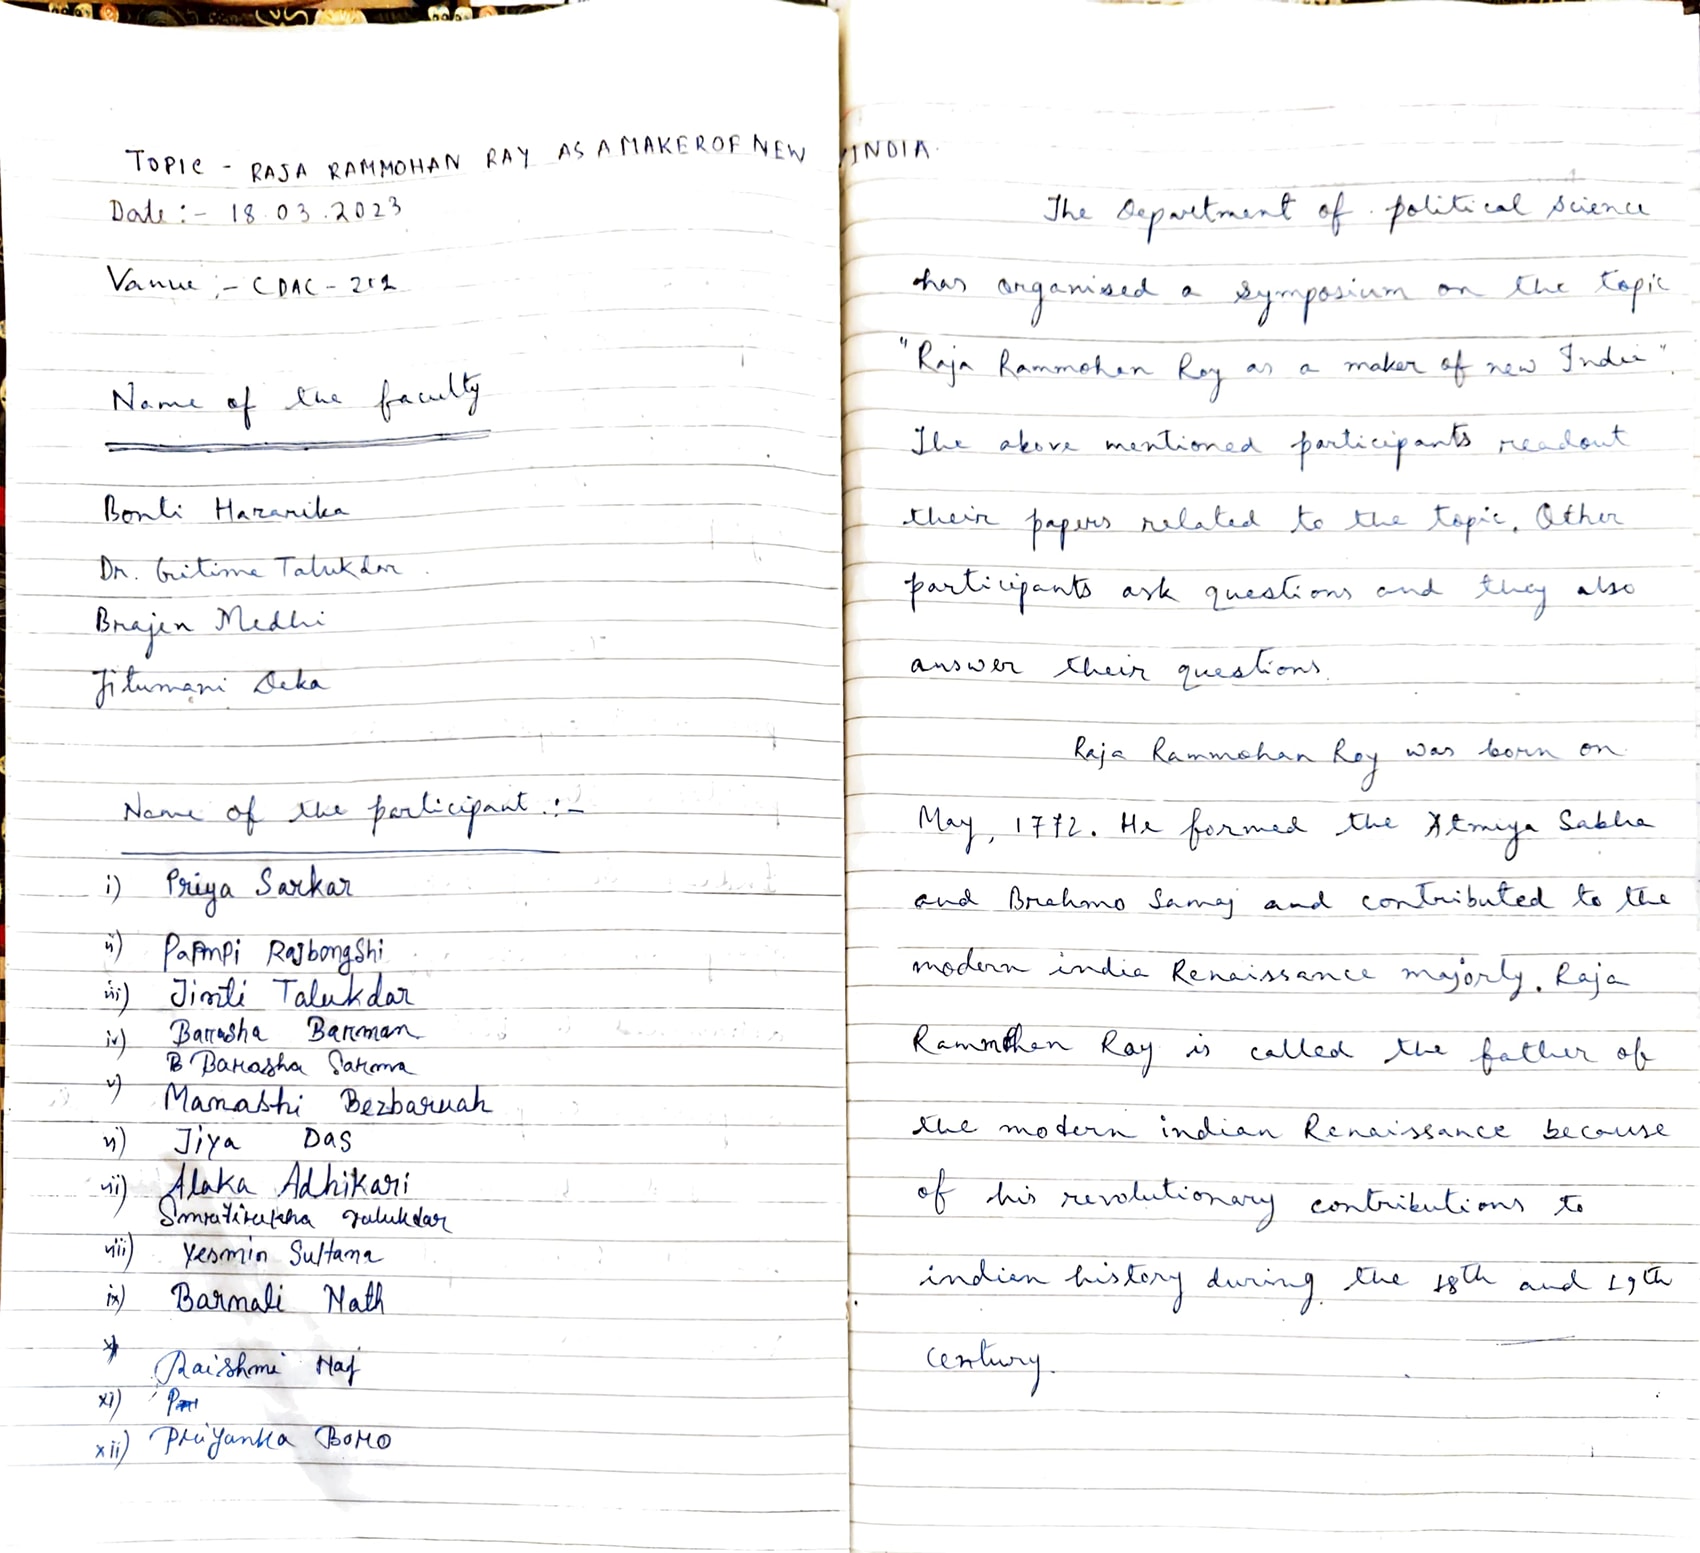 TOPIC - RAJA RAMMOHAN RAY AS A MAKER OF NEW INDIA.
Date :- 18.03.2023
Vanue :- CDAC - 212
Name of the faculty
Bonti Hazarika
Dr. Gitima Talukdar.
Brajen Medhi
Jitumani Deka
Name of the participant :-
i) Priya Sarkar
ii) Pampi Rajbongshi
iii) Jinti Talukdar
iv) Barasha Barman
B Barasha Sarma
v) Manashi Bezbaruah
vi) Jiya Das
vii) Alaka Adhikari
Smritirekha Talukdar
viii) Yesmin Sultana
ix) Barnali Nath
x)
Raishmi Haj
xi)
xii) Priyanka Boro
The Department of political science
has organised a symposium on the topic
"Raja Rammohan Roy as a maker of new India".
The above mentioned participants readout
their papers related to the topic. Other
participants ask questions and they also
answer their questions.
Raja Rammohan Roy was born on
May, 1772. He formed the Atmiya Sabha
and Brahmo Samaj and contributed to the
modern india Renaissance majorly. Raja
Rammohan Roy is called the father of
the modern indian Renaissance because
of his revolutionary contributions to
indian history during the 18th and 19th
century.